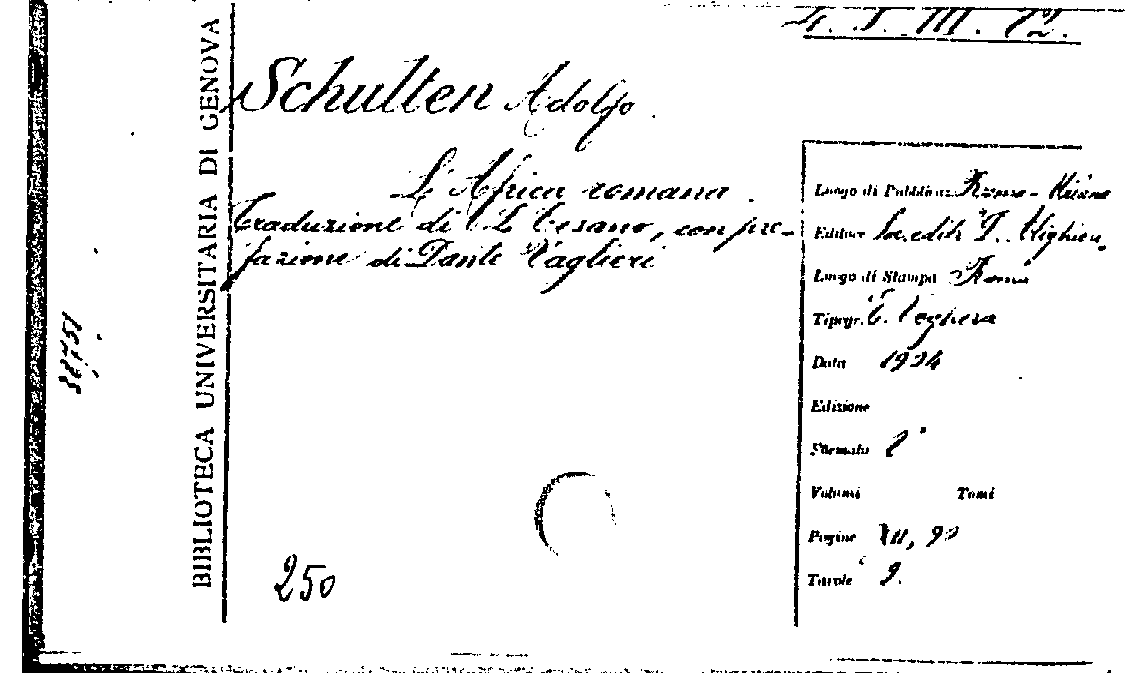 4. J. III. 72.
BIBLIOTECA UNIVERSITARIA DI GENOVA
Schulten Adolfo.
L'Africa romana.
Traduzione di L. Cesano, con pre-
fazione di Dante Vaglieri
Luogo di Pubblicaz. Roma - Milano
Editore Soc. edit. D. Alighieri
Luogo di Stampa Roma
Tipogr. E. Voghera
Data 1904
Edizione
Formato 8°
Volumi Tomi
Pagine
Tavole 9.
250